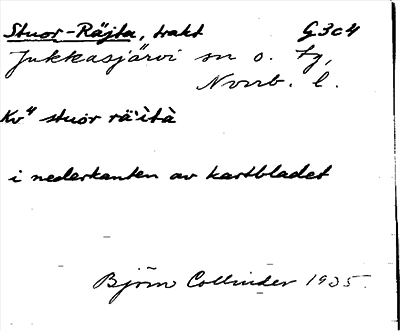 Stuor-Räjta, trakt G3c4
Jukkasjärvi sn o. tg,
Norrb. l.
Kv⁴ stuor rä·ìtà
i nederkanten av kartbladet
Björn Collinder 1935.